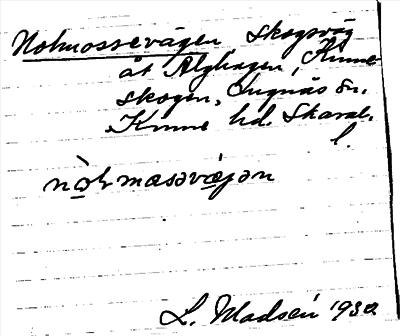 Nohmossevägen, skogsväg
åt Älghagen, Kinne-
skogen, Lugnås sn.
Kinne hd. Skarab.
l.
L. Madsén 1930